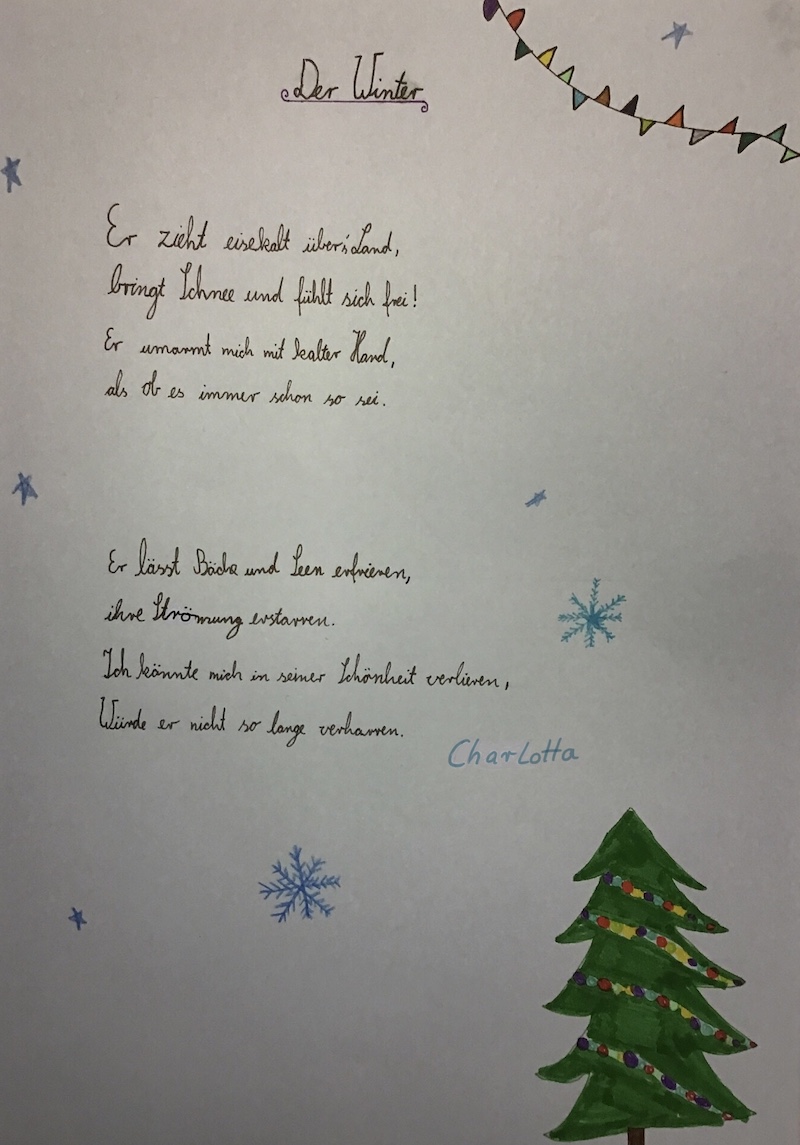 Der Winter
Er zieht eisekalt über's Land,
bringt Schnee und fühlt sich frei!
Er umarmt mich mit kalter Hand,
als ob es immer schon so sei.
Er lässt Bäche und Seen erfrieren,
ihre Strömung erstarren.
Ich könnte mich in seiner Schönheit verlieren,
Würde er nicht so lange verharren.
Charlotta